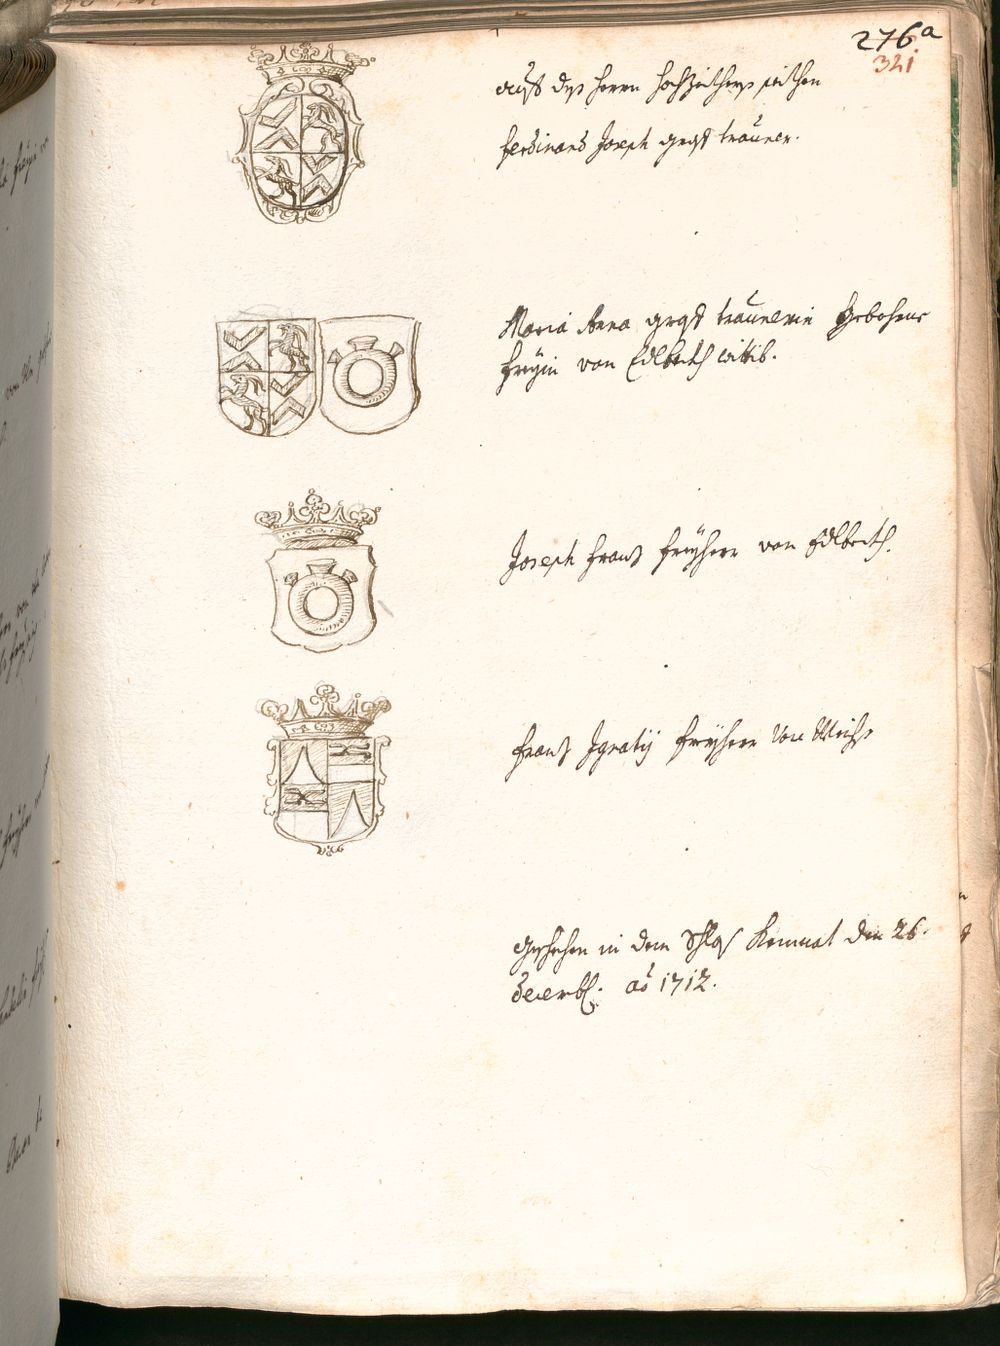 276a
321
auf des herrn hochzeithers seithen
ferdinand Joseph graf trauner.
Maria Anna graf traunerin Gebohrne
freyin von Edlbeckh wittib.
Joseph franz freyherr von Edlbeckh.
franz Ignatij freyherr von Weichs
geschehen in dem Schlos Kemnat den 26.
decembl. ao 1712.